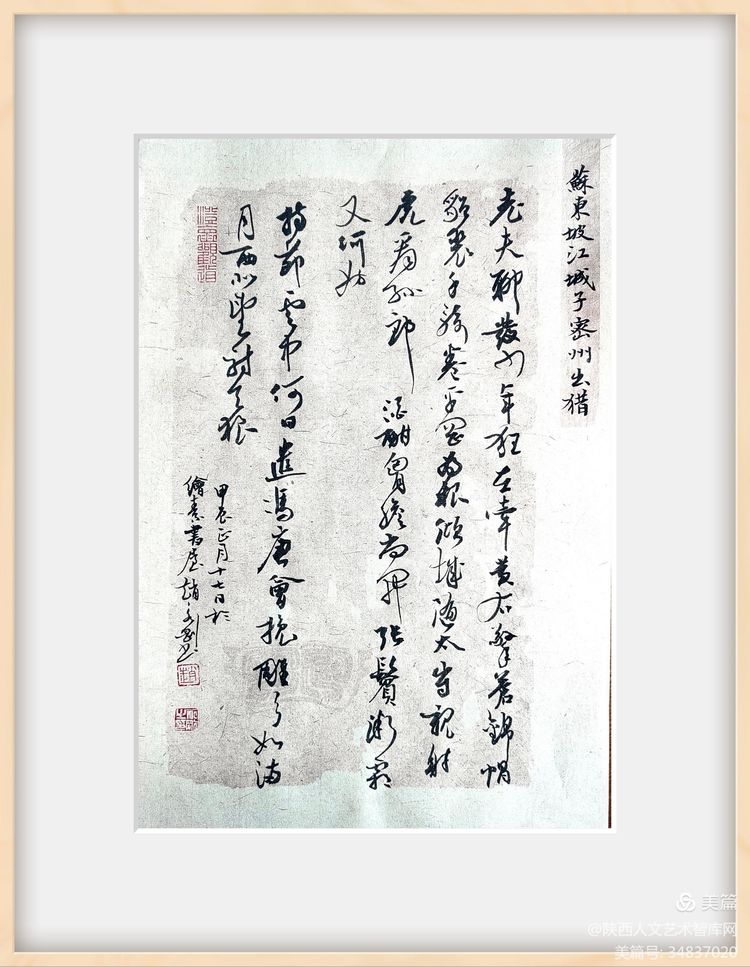 蘇東坡江城子密州出猎
老夫聊發少年狂左牽黄右擎蒼錦帽
貂裘千騎卷平冈為报倾城随太守親射
虎看孙郎 酒酣胸膽尚开張鬢微霜
又何妨
持節雲中何日遣馮唐會挽雕弓如满
月西北望射天狼
甲辰正月十七日於
繪書屋趙剛书
澄懷觀道
美篇
@陕西人文艺术智库网
美篇号: 34837020